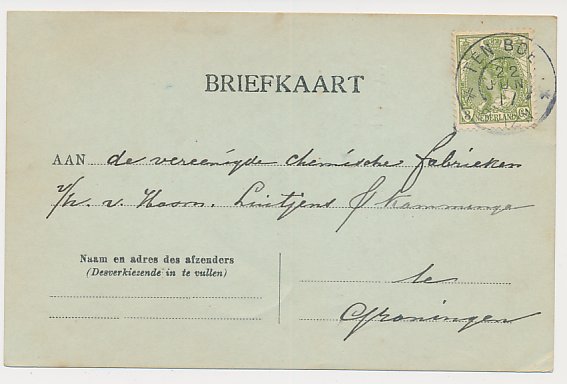 BRIEFKAART
TEN BOE
22
JUN
17
3 Ct
NEDERLAND
AAN de vereenigde chemische fabrieken
v/h. v. Hoorn. Luitjens & Kamminga
Naam en adres des afzenders
(Desverkiezende in te vullen)
te
Groningen